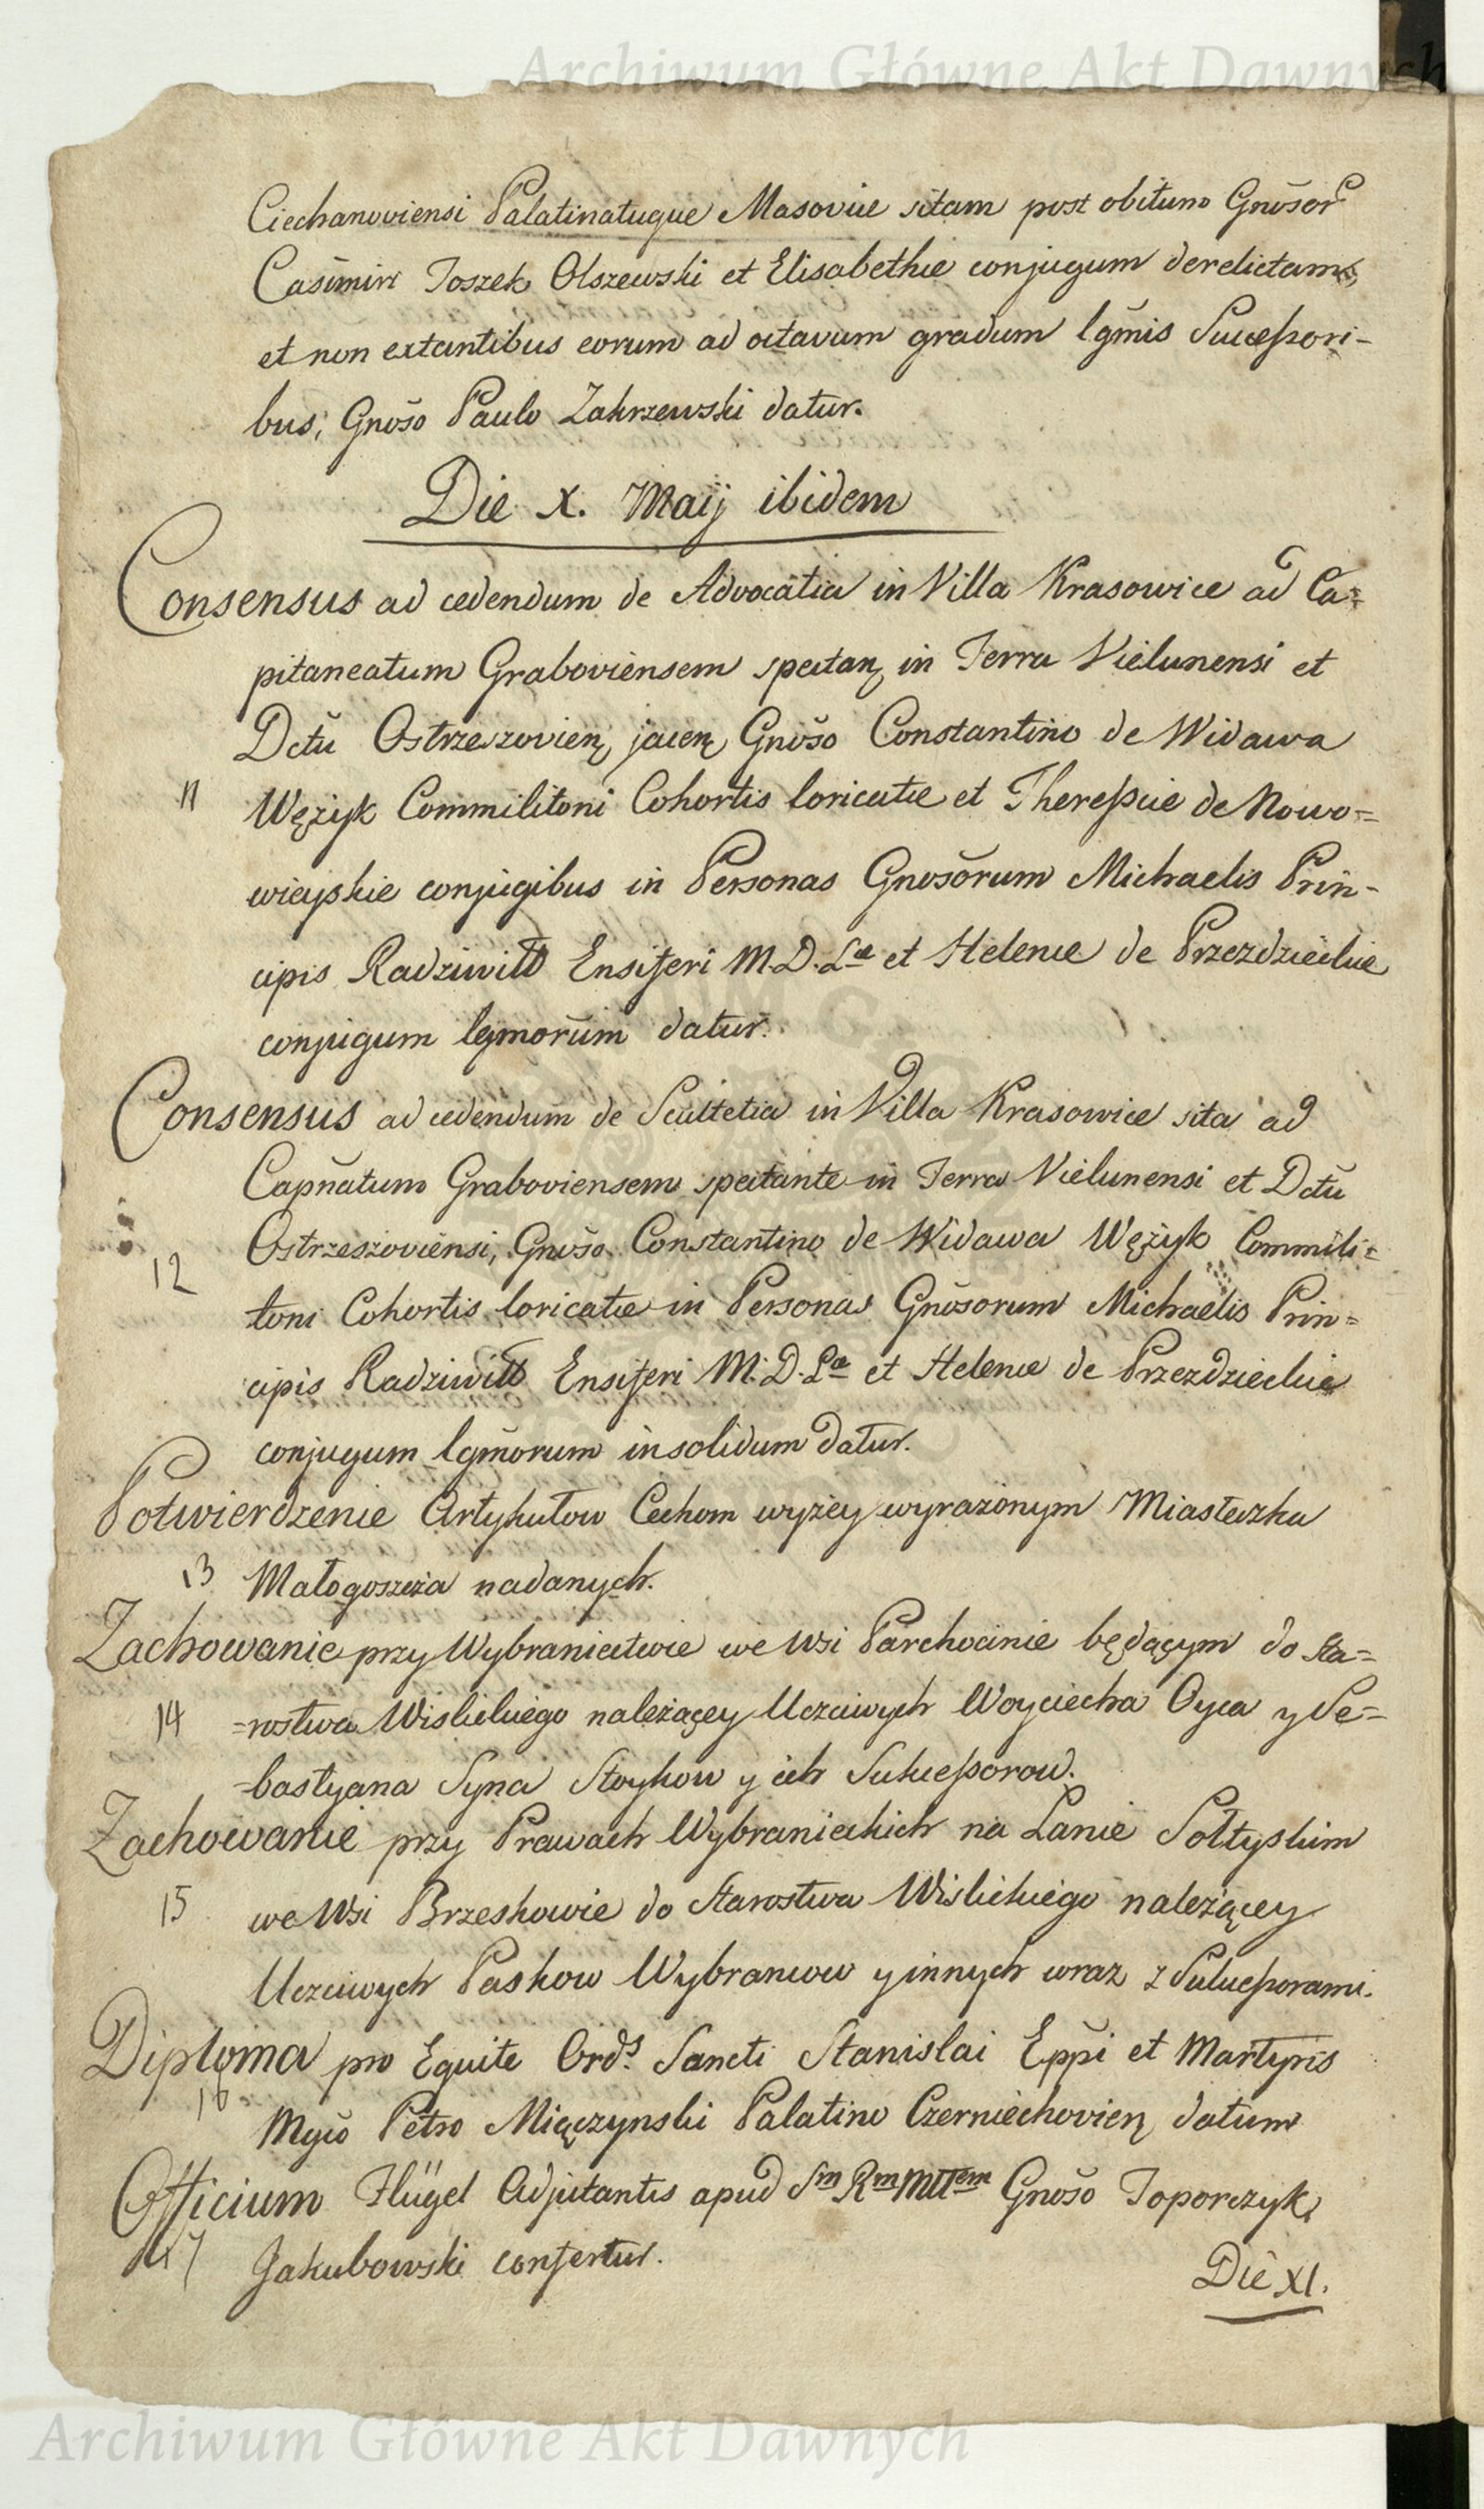 Archiwum Główne Akt Dawnych
Ciechanoviensi Palatinatuque Masoviæ sitam post obitum Gnõsor
Casimiri Joszek Olszewski et Elisabethæ conjugum derelictam,
et non extantibus eorum ad octavum gradum lgmis Succeßori-
bus, Gnõso Paulo Zakrzewski datur.
Die X. Maij ibidem
Consensus ad cedendum de Advocatia in Villa Krasowice ad Ca=
pitaneatum Graboviensem spectan. in Terra Vielunensi et
Dctũ Ostrzeszovien. jacen. Gnõso Constantino de Widawa
11 Wężyk Commilitoni Cohortis loricatæ et Thereßiæ de Nowo=
wieyskie conjugibus in Personas Gnosõrum Michaelis Prin-
cipis Radziwiłł Ensiferi M.D.Læ et Helenæ de Przezdzieckie
conjugum lgmorum datur.
Consensus ad cedendum de Scultetia in Villa Krasowice sita ad
Capñatum Graboviensem spectante in Terra Vielunensi et Dctũ
Ostrzeszoviensi, Gnõso Constantino de Widawa Wężyk Commili=
12
toni Cohortis loricatæ in Personas Gnõsorum Michaelis Prin=
cipis Radziwiłł Ensiferi M.D.Læ et Helenæ de Przezdzieckie
conjugum lgmorum insolidum datur.
Potwierdzenie Artykułow Cechom wyżey wyrażonym Miasteczka
13 Małogoszcza nadanych.
Zachowanie przy Wybraniectwie we Wsi Parchocinie będącym do Sta=
14 =rostwa Wislickiego należącey Uczciwych Woyciecha Oyca y Se=
=bastyana Syna Stoykow y ich Sukceßorow.
Zachowanie przy Prawach Wybranieckich na Lanie Sołtyskim
15 we Wsi Brzeskowie do Starostwa Wislickiego należącey
Uczciwych Paskow Wybrancow y innych wraz z Sukceßorami.
Diploma pro Equite Ords. Sancti Stanislai Eppi et Martyris
16
Mgco Petro Miączynski Palatino Czerniechovien. datum
Officium Flügel Adjutantis apud Sm Rm Mttem Gnõso Toporczyk
17 Jakubowski confertur.
Die XI.
Archiwum Główne Akt Dawnych